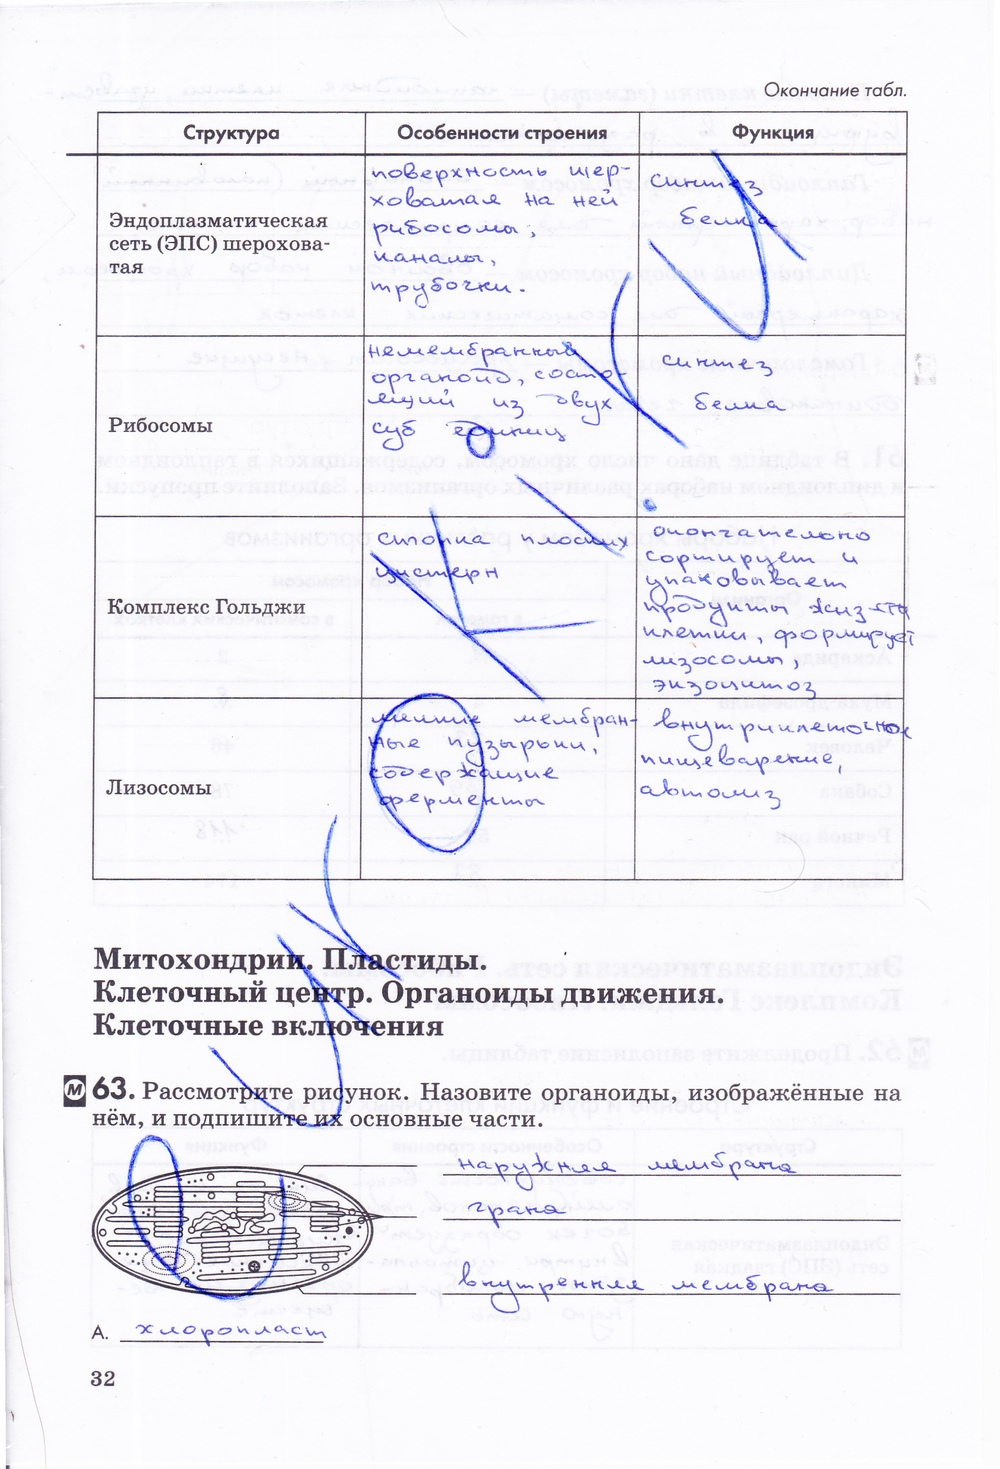 Окончание табл.
Структура Особенности строения Функция
Эндоплазматическая
сеть (ЭПС) шерохова-
тая
поверхность шер-
ховатая на ней
рибосомы;
каналы,
трубочки.
синтез
белка
Рибосомы
немембранный
органоид, состо-
ящий из двух
суб единиц
синтез
белка
Комплекс Гольджи
стопка плоских
цистерн
окончательно
сортирует и
упаковывает
продукты жиз-сти
клетки, формирует
лизосомы,
экзоцитоз
Лизосомы
мелкие мембран-
ные пузырьки,
содержащие
ферменты
внутриклеточное
пищеварение,
автолиз
Митохондрии. Пластиды.
Клеточный центр. Органоиды движения.
Клеточные включения
М 63. Рассмотрите рисунок. Назовите органоиды, изображённые на
нём, и подпишите их основные части.
наружная мембрана
грана
внутренняя мембрана
А. хлоропласт
32